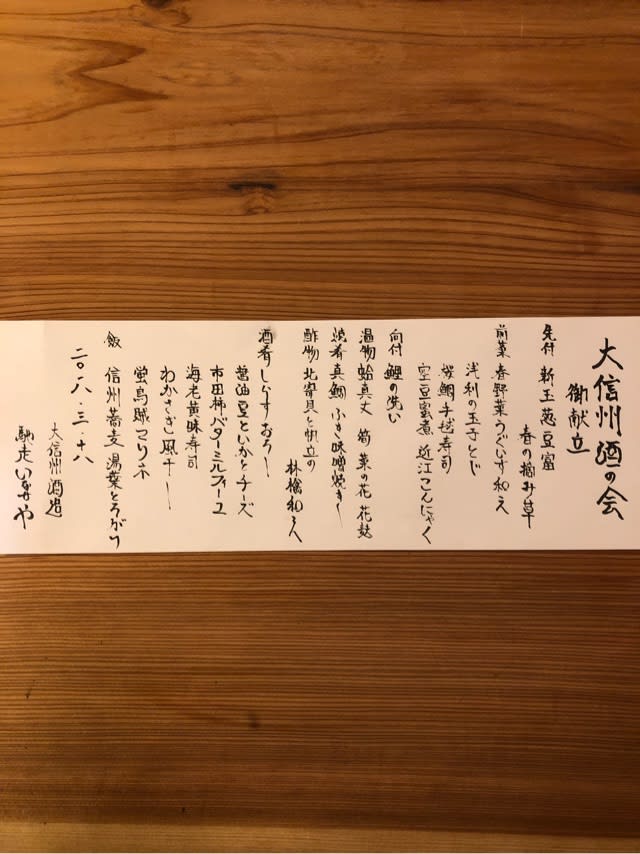 大信州酒の会
御献立
先付 新玉葱豆富
春の摘み草
前菜 春野菜うぐいす和え
浅利の玉子とじ
桜鯛手毬寿司
空豆蜜煮 近江こんにゃく
向付 鯉の洗い
温物 蛤真丈 筍 菜の花 花麩
焼肴 真鯛ふき味噌焼き
酢物 北寄貝と帆立の
林檎和え
酒肴 しらすおろし
醤油豆といかとチーズ
市田柿バターミルフィーユ
海老黄味寿司
わかさぎ風干し
蛍烏賊マリネ
飯 信州蕎麦 湯葉とろがけ
二〇一八・三・十八
大信州酒造
馳走いなや